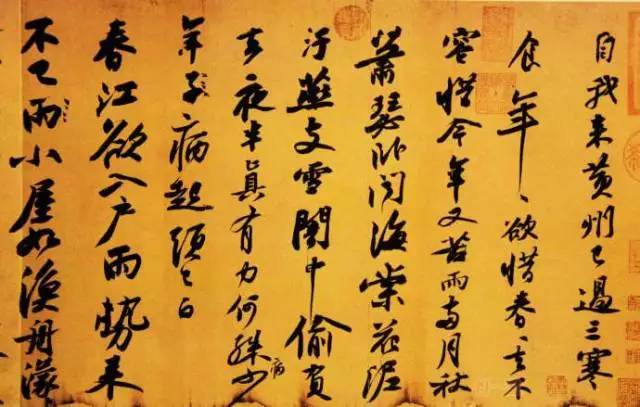 自我來黃州已過三寒
食年〻欲惜春〻去不
容惜今年又苦雨兩月秋
蕭瑟臥聞海棠花泥
汙燕支雪闇中偷負
去夜半真有力何殊病少
年子病起頭已白
春江欲入戶雨勢來
不已雨小屋如漁舟濛